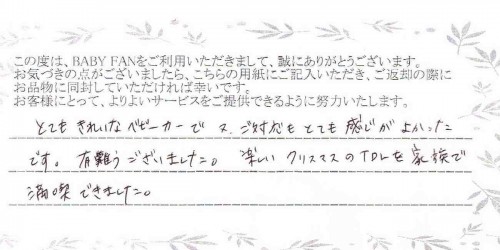 この度は、BABY FANをご利用いただきまして、誠にありがとうございます。
お気づきの点がございましたら、こちらの用紙にご記入いただき、ご返却の際に
お品物に同封していただければ幸いです。
お客様にとって、よりよいサービスをご提供できるように努力いたします。
とてもきれいなベビーカーで又、ご対応もとても感じがよかった
です。有難うございました。楽しいクリスマスのTDLを家族で
満喫できました。